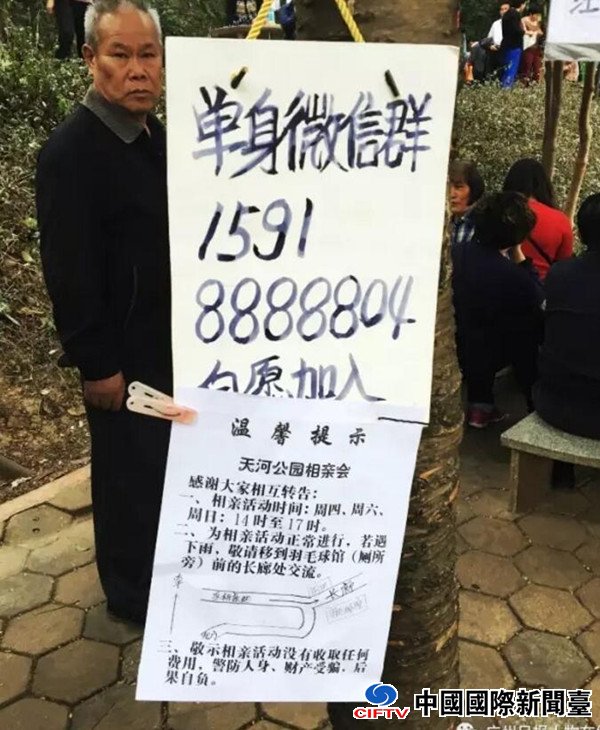 单身微信群
1591
8888804
自愿加入
温馨提示
天河公园相亲会
感谢大家相互转告：
一、相亲活动时间：周四、周六、
周日：14时至17时。
二、为相亲活动正常进行，若遇
下雨，敬请移到羽毛球馆（厕所
旁）前的长廊处交流。
长廊
三、敬示相亲活动没有收取任何
费用，警防人身、财产受骗，后
果自负。
CIFTV
中國國際新聞臺